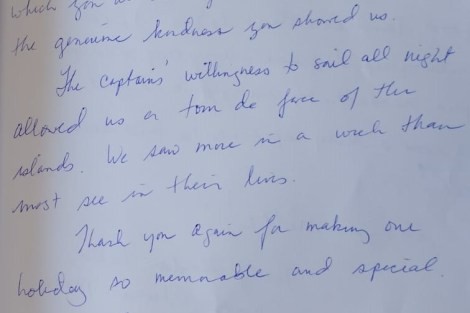 which you
the genuine kindness you showed us.
The captains' willingness to sail all night
allowed us a tour de force of the
islands. We saw more in a week than
most see in their lives.
Thank you again for making our
holiday so memorable and special.